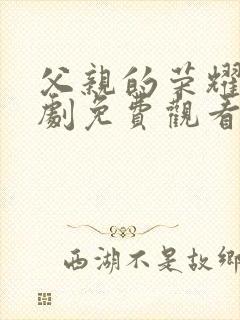 父親的荣耀
劇免費觀看
西湖不是故鄉